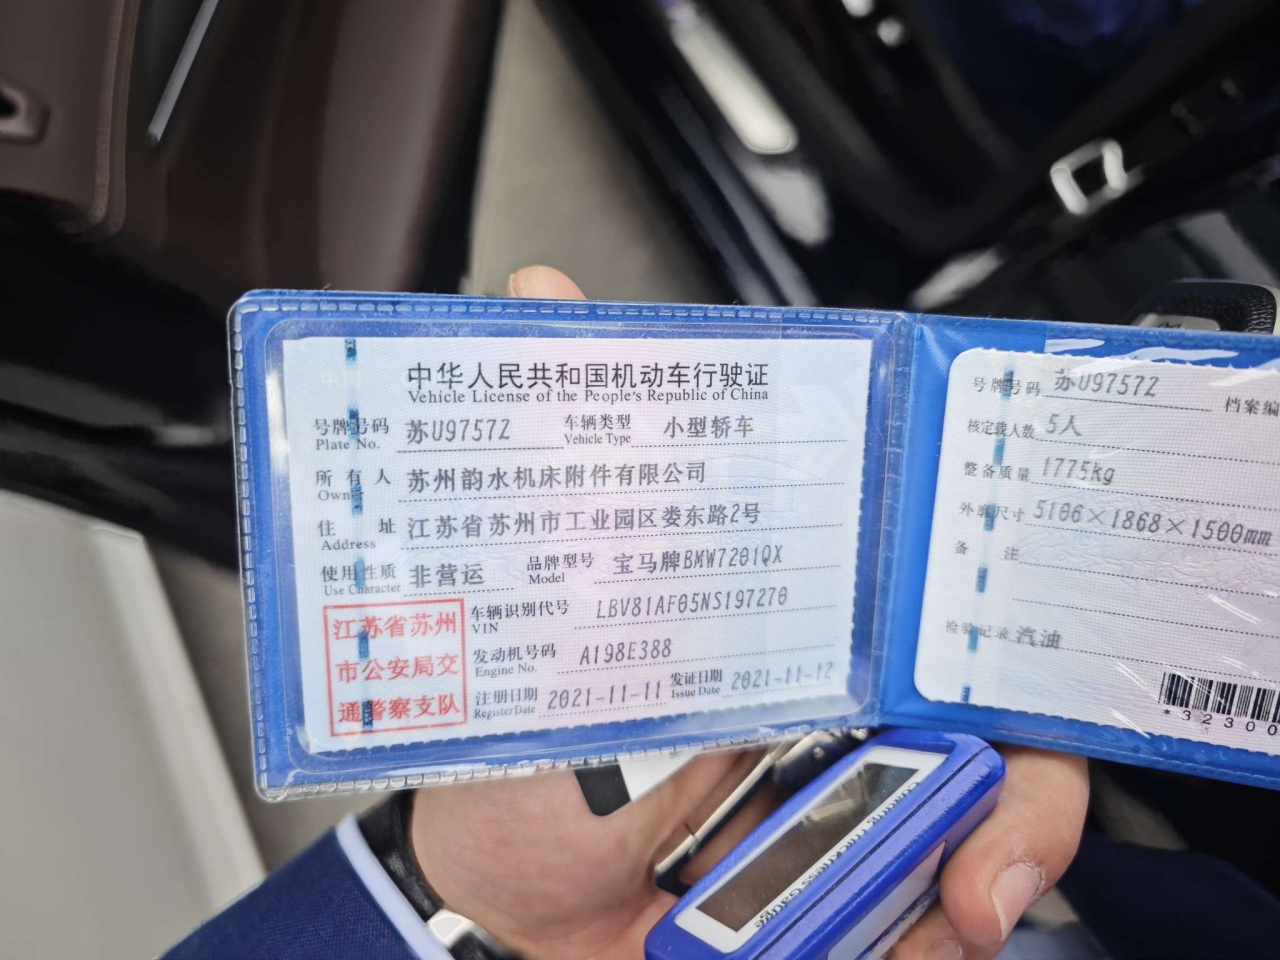 中华人民共和国机动车行驶证
Vehicle License of the People's Republic of China
号牌号码 苏U9757Z 车辆类型 小型轿车
Plate No. Vehicle Type
所有人 苏州韵水机床附件有限公司
Owner
住址 江苏省苏州市工业园区娄东路2号
Address
使用性质 非营运 品牌型号 宝马牌BMW7201QX
Use Character Model
江苏省苏州
市公安局交
通警察支队
车辆识别代号 LBV81AF05NS197270
VIN
发动机号码 A198E388
Engine No.
注册日期 2021-11-11 发证日期 2021-11-12
Register Date Issue Date
号牌号码 苏U9757Z 档案编
核定载人数 5人
整备质量 1775kg
外廓尺寸 5106×1868×1500mm
备注
检验记录 汽油
*32300
Coating Thickness Gauge